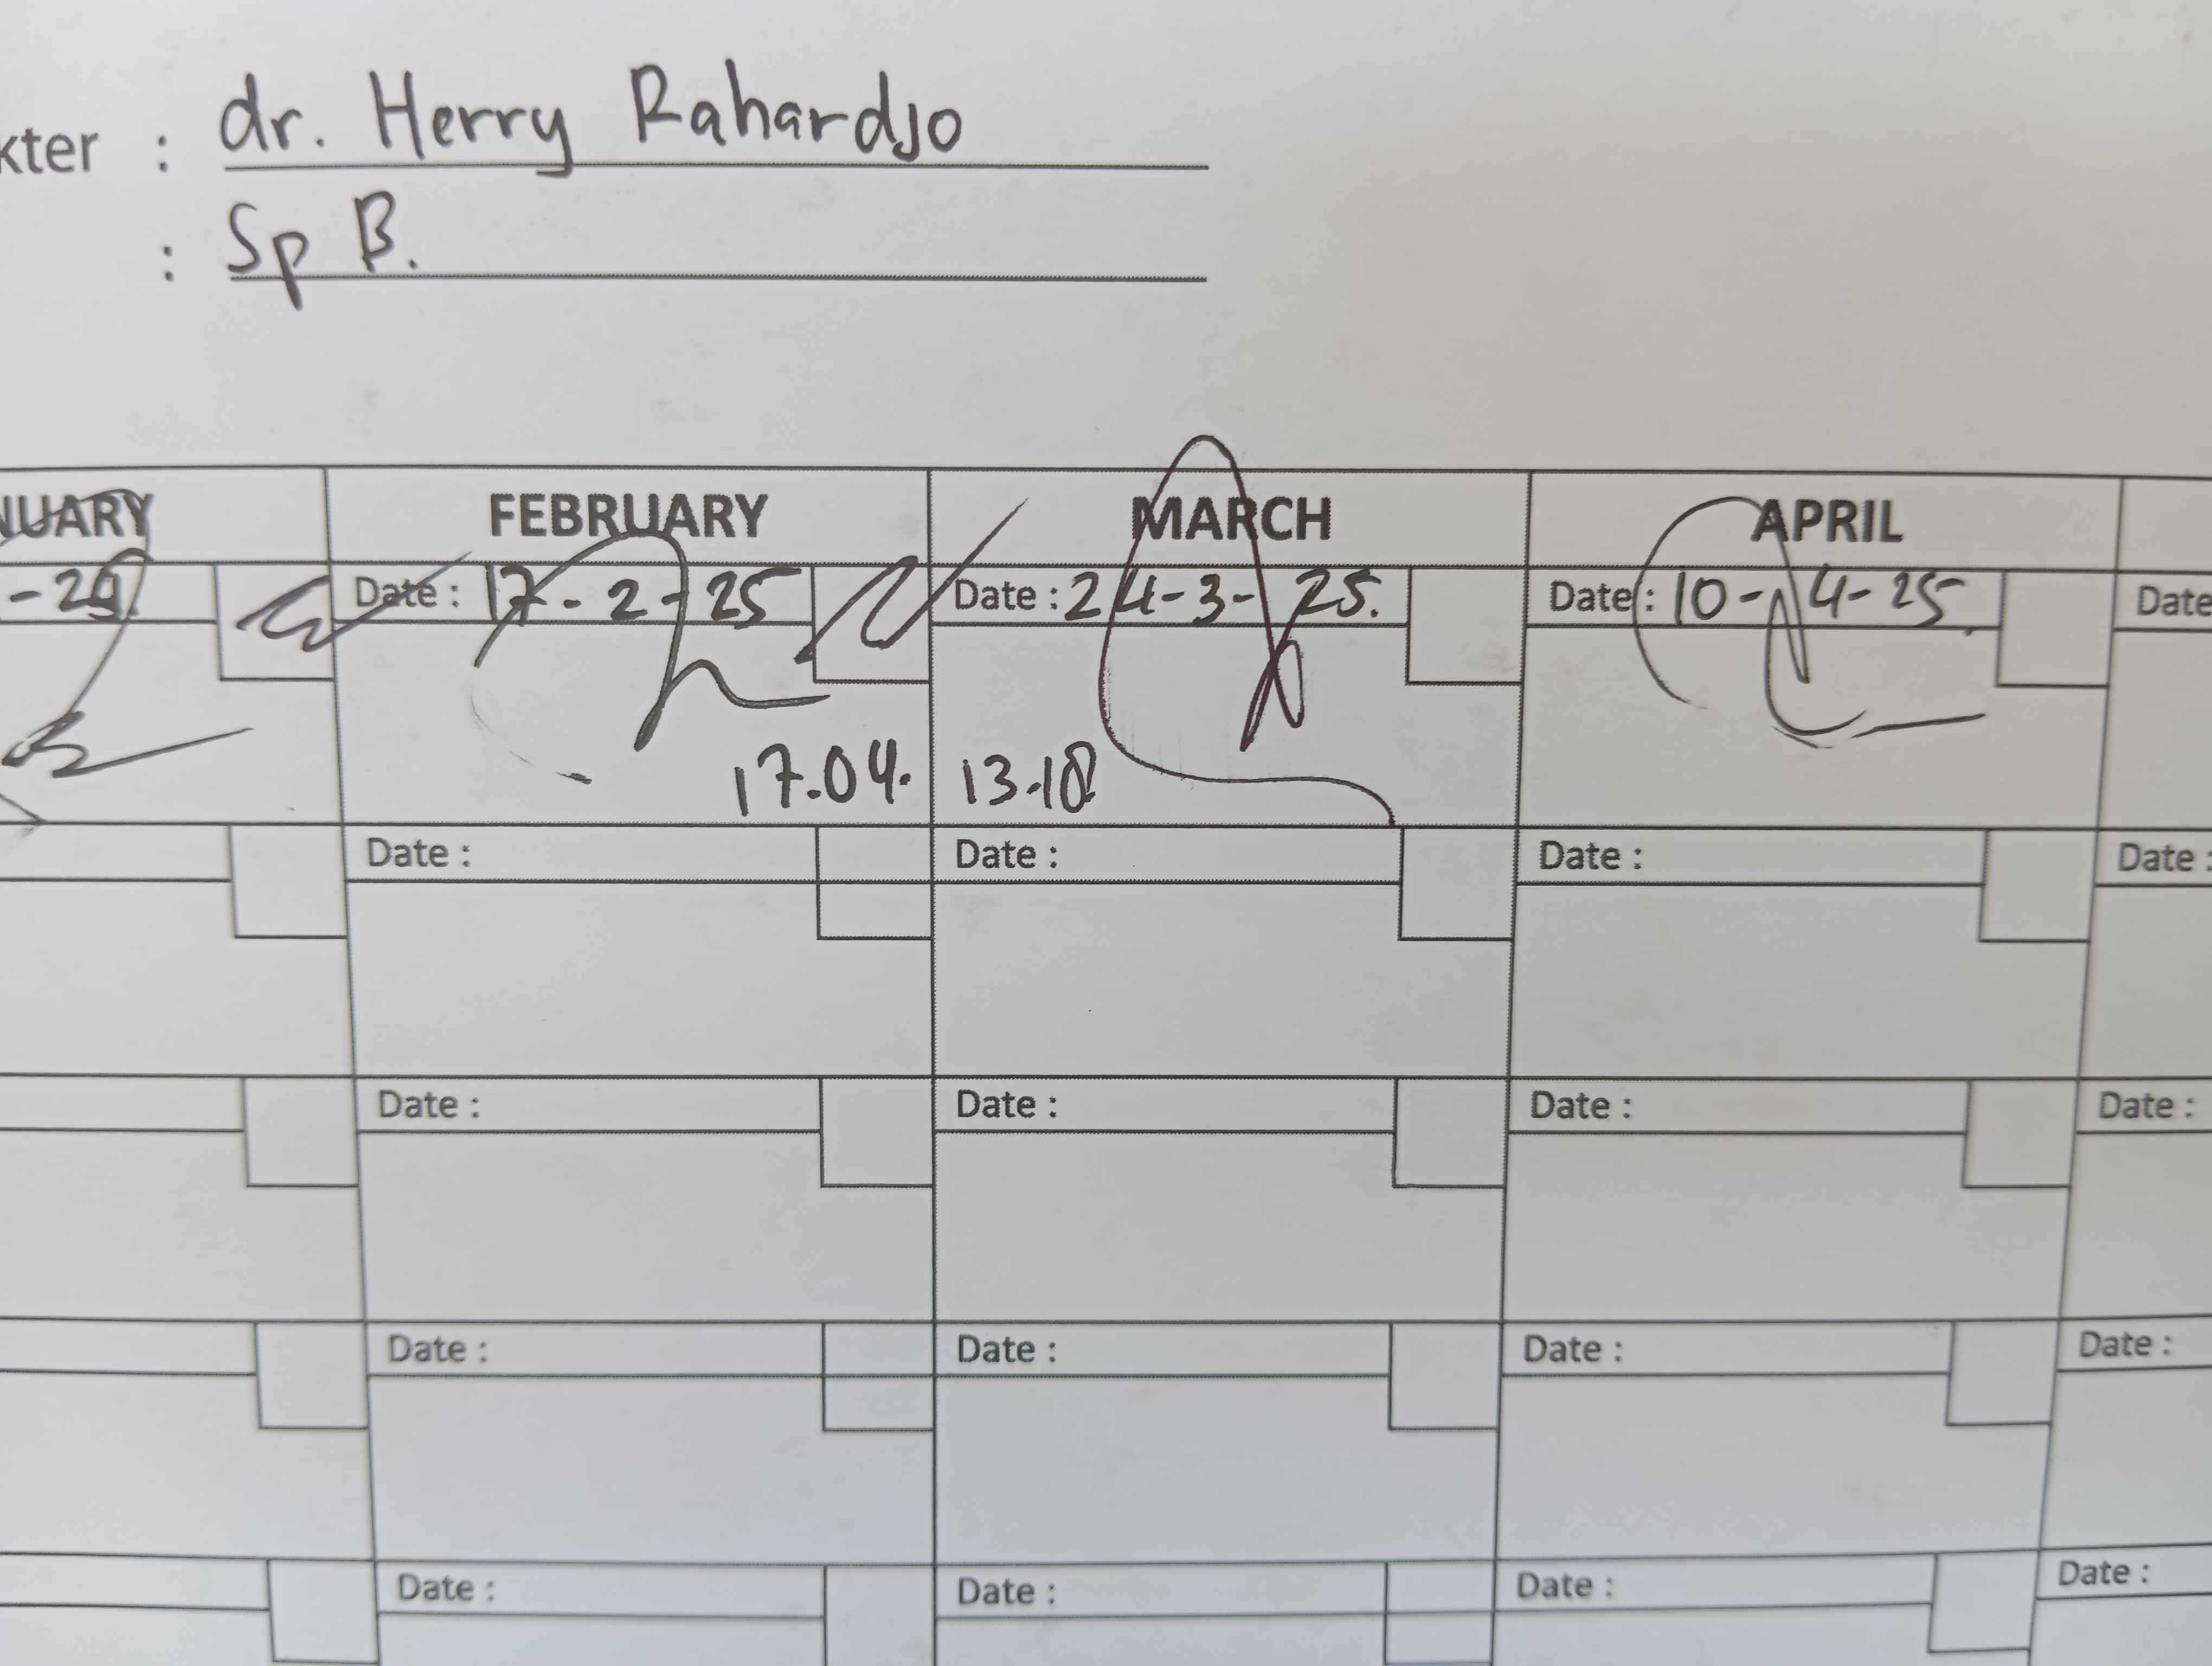 kter : dr. Herry Rahardjo
: Sp B.
NUARY FEBRUARY MARCH APRIL
Date : 17-2-25 Date : 24-3-25. Date : 10-4-25 Date
17.04. 13.18
Date : Date : Date : Date :
Date : Date : Date : Date :
Date : Date : Date : Date :
Date : Date : Date : Date :